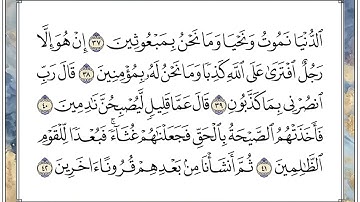 ٱلدُّنْيَا نَمُوتُ وَنَحْيَا وَمَا نَحْنُ بِمَبْعُوثِينَ ٣٧ إِنْ هُوَ إِلَّا
رَجُلٌ ٱفْتَرَىٰ عَلَى ٱللَّهِ كَذِبًا وَمَا نَحْنُ لَهُۥ بِمُؤْمِنِينَ ٣٨ قَالَ رَبِّ
ٱنصُرْنِى بِمَا كَذَّبُونِ ٣٩ قَالَ عَمَّا قَلِيلٍ لَّيُصْبِحُنَّ نَٰدِمِينَ ٤٠
فَأَخَذَتْهُمُ ٱلصَّيْحَةُ بِٱلْحَقِّ فَجَعَلْنَٰهُمْ غُثَآءً ۚ فَبُعْدًا لِّلْقَوْمِ
ٱلظَّٰلِمِينَ ٤١ ثُمَّ أَنشَأْنَا مِنۢ بَعْدِهِمْ قُرُونًا ءَاخَرِينَ ٤٢